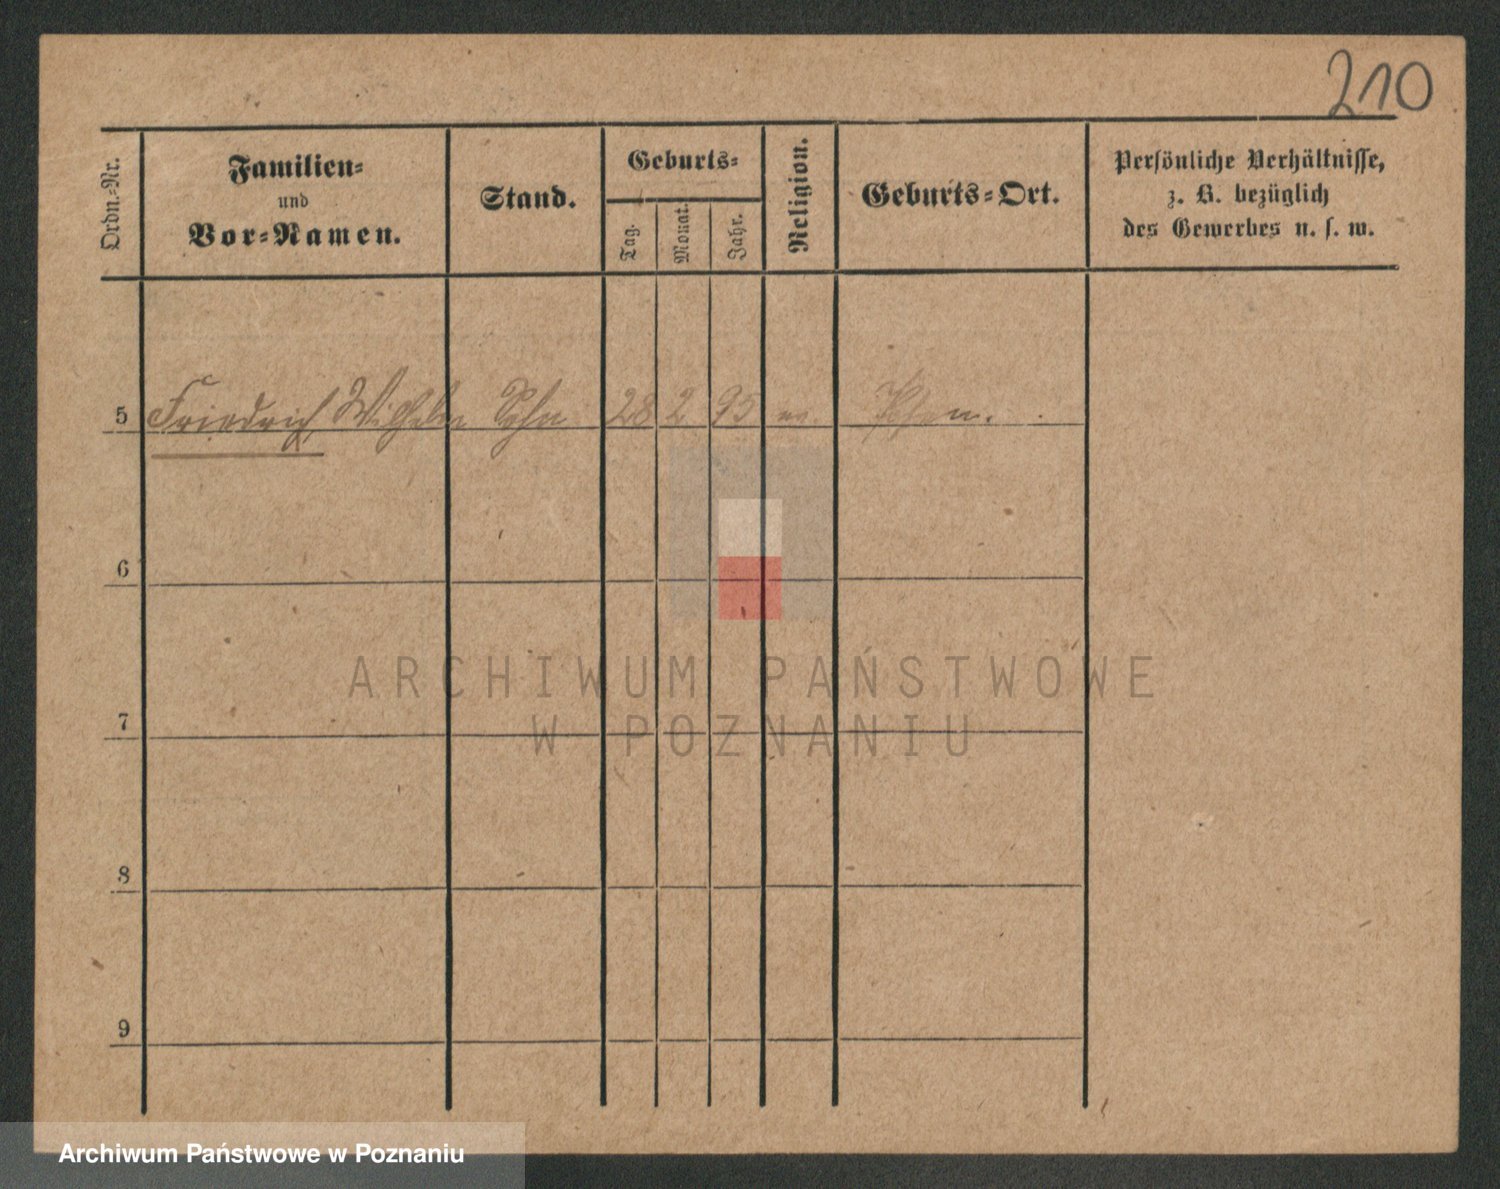 210
Ordn.-Nr.
Familien-
und
Vor-Namen.
Stand.
Geburts-
Tag.
Monat.
Jahr.
Religion.
Geburts-Ort.
Persönliche Verhältnisse,
z. B. bezüglich
des Gewerbes u. s. w.
5 Friedrich Wilhelm Sohn 28 2 95 ev. Posen.
6
7
8
9
ARCHIWUM PAŃSTWOWE
W POZNANIU
Archiwum Państwowe w Poznaniu